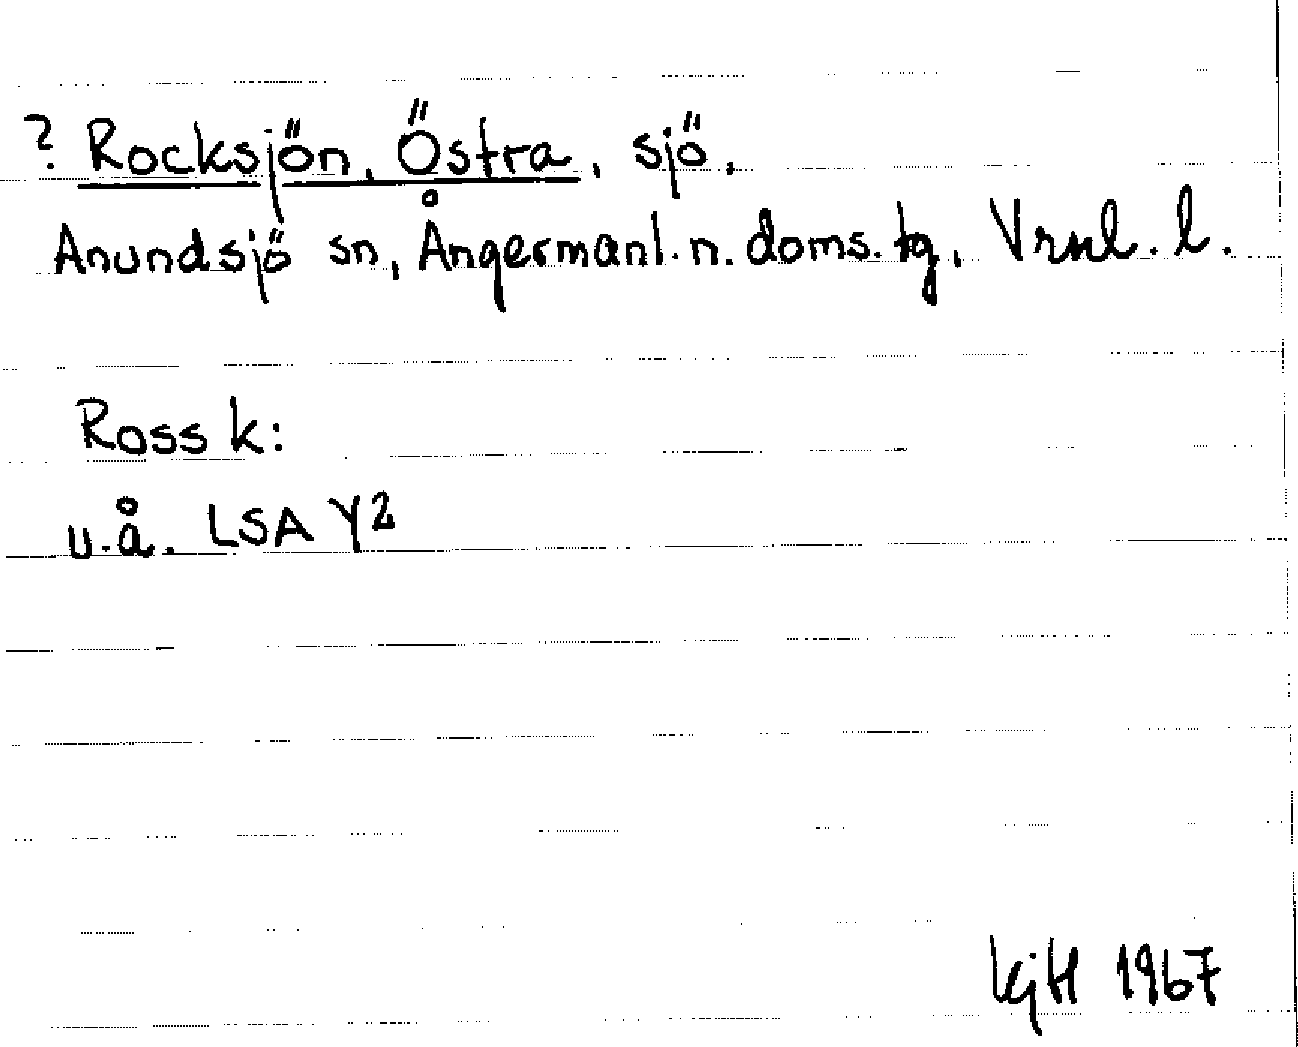 ? Rocksjön, Östra, sjö,
Anundsjö sn, Ångermanl. n. doms. tg, Vrnl. l.
Ross k:
u.å. LSA Y2
KjH 1967